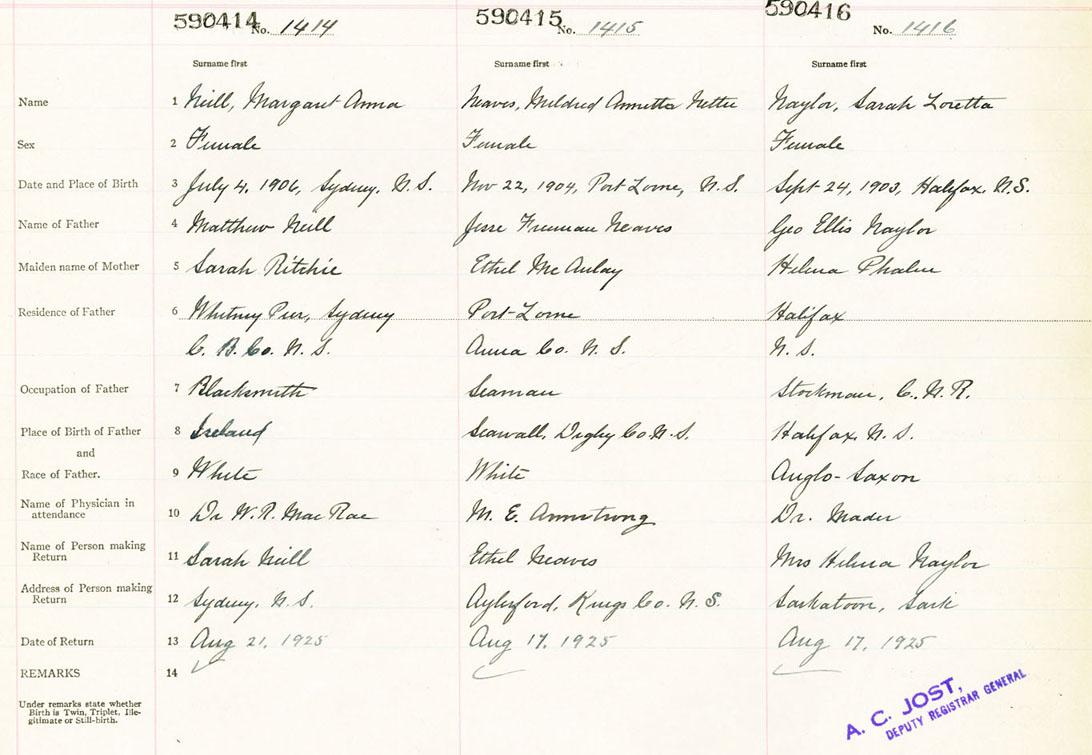 590414 No. 1414 590415 No. 1415 590416 No. 1416
Surname first Surname first Surname first
Name 1 Neill, Margaret Anna Neaves, Mildred Annetta Nettie Naylor, Sarah Loretta
Sex 2 Female Female Female
Date and Place of Birth 3 July 4, 1906, Sydney, N.S. Nov 22, 1904, Port Lorne, N.S. Sept 24, 1903, Halifax, N.S.
Name of Father 4 Matthew Neill Jesse Freeman Neaves Geo Ellis Naylor
Maiden name of Mother 5 Sarah Ritchie Ethel McAulay Helena Phalen
Residence of Father 6 Whitney Pier, Sydney Port Lorne Halifax
C. B. Co. N. S. Anna Co. N. S. N. S.
Occupation of Father 7 Blacksmith Seaman Stockman, C. N. R.
Place of Birth of Father 8 Ireland Seawall, Digby Co N.S. Halifax, N. S.
and
Race of Father. 9 White White Anglo-Saxon
Name of Physician in attendance 10 Dr W. R. MacRae M. E. Armstrong Dr. Mader
Name of Person making Return 11 Sarah Neill Ethel Neaves Mrs Helena Naylor
Address of Person making Return 12 Sydney, N. S. Aylesford, Kings Co. N. S. Saskatoon, Sask
Date of Return 13 Aug 21, 1925 Aug 17, 1925 Aug 17, 1925
REMARKS 14
Under remarks state whether
Birth is Twin, Triplet, Ille-
gitimate or Still-birth.
A. C. JOST,
DEPUTY REGISTRAR GENERAL